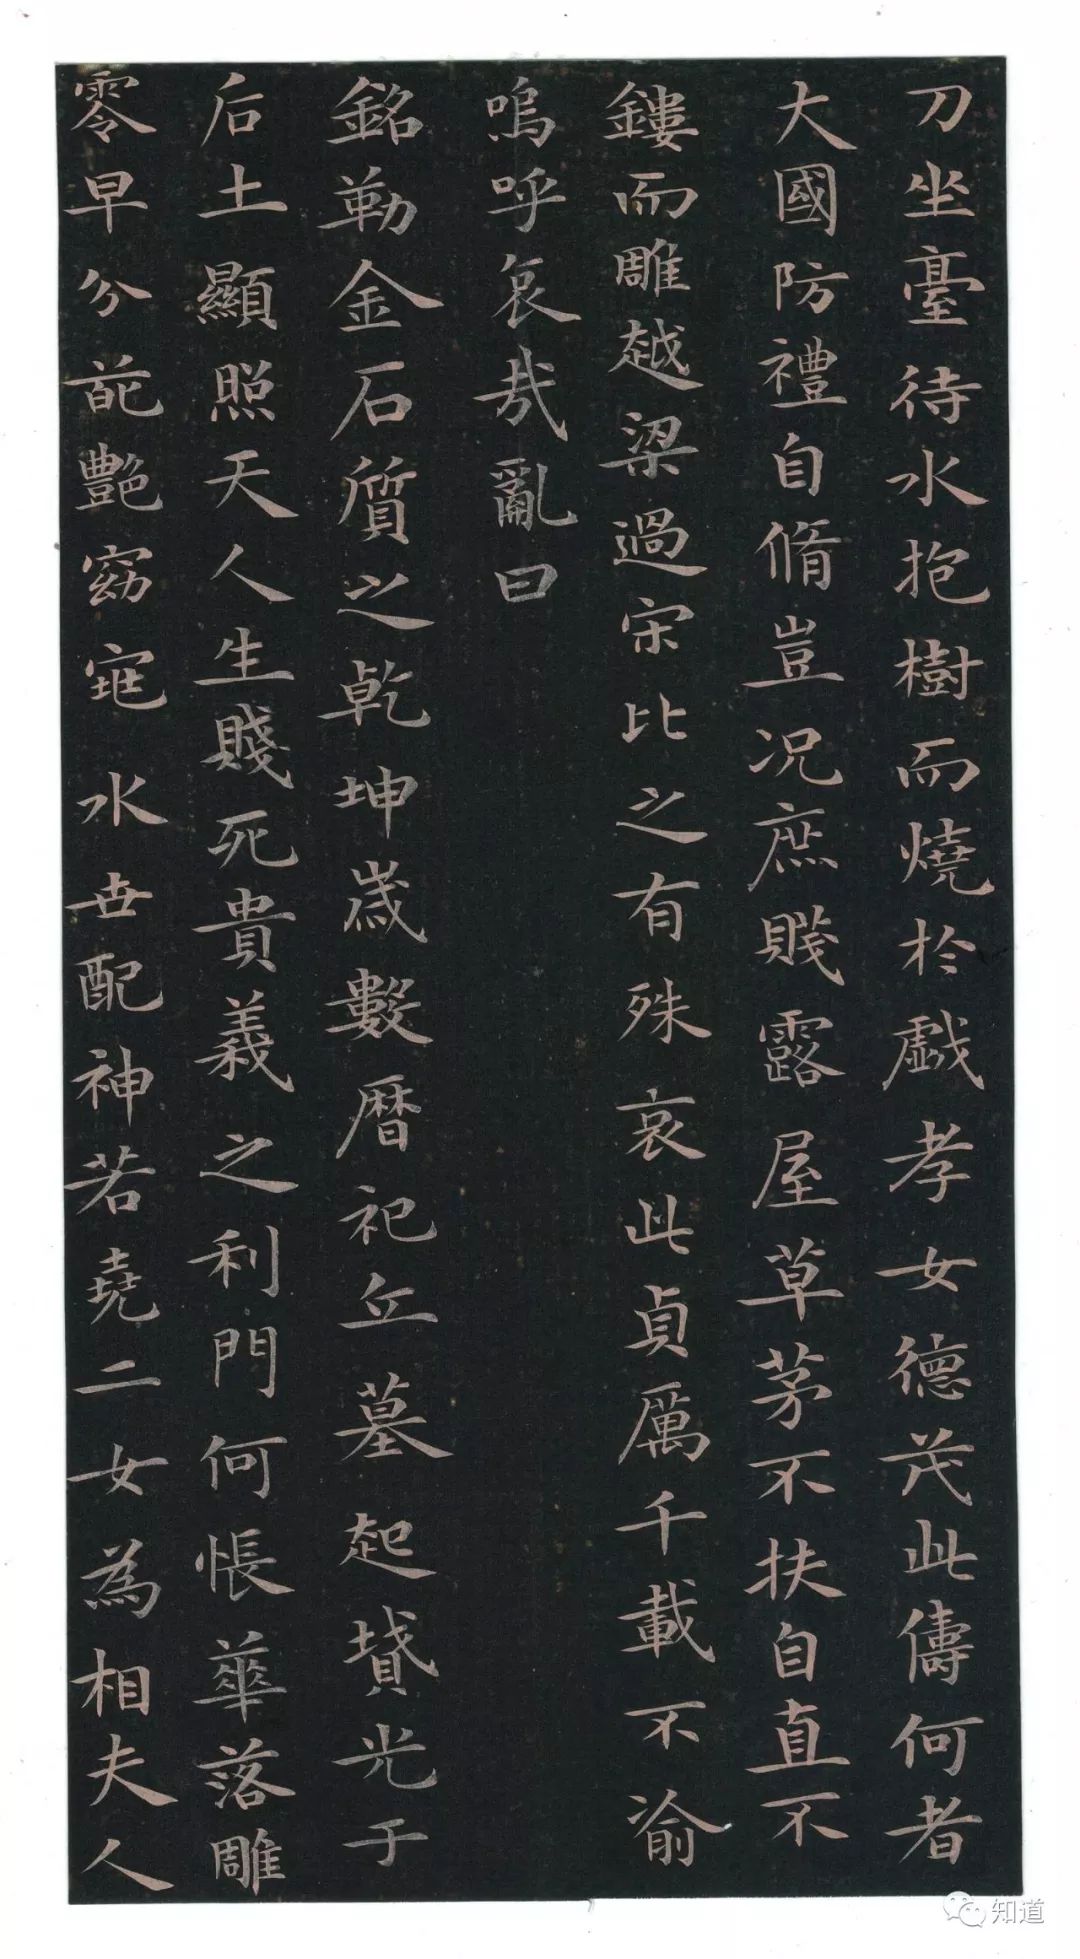 刀坐臺待水抱樹而燒於戲孝女德茂此儔何者
大國防禮自脩豈況庶賤露屋草茅不扶自直不
鏤而雕越梁過宋比之有殊哀此貞厲千載不渝
嗚呼哀哉亂曰
銘勒金石質之乾坤歲數曆祀丘墓起墳光于
后土顯照天人生賤死貴義之利門何悵華落雕
零早分葩艷窈窕永世配神若堯二女為相夫人
知道